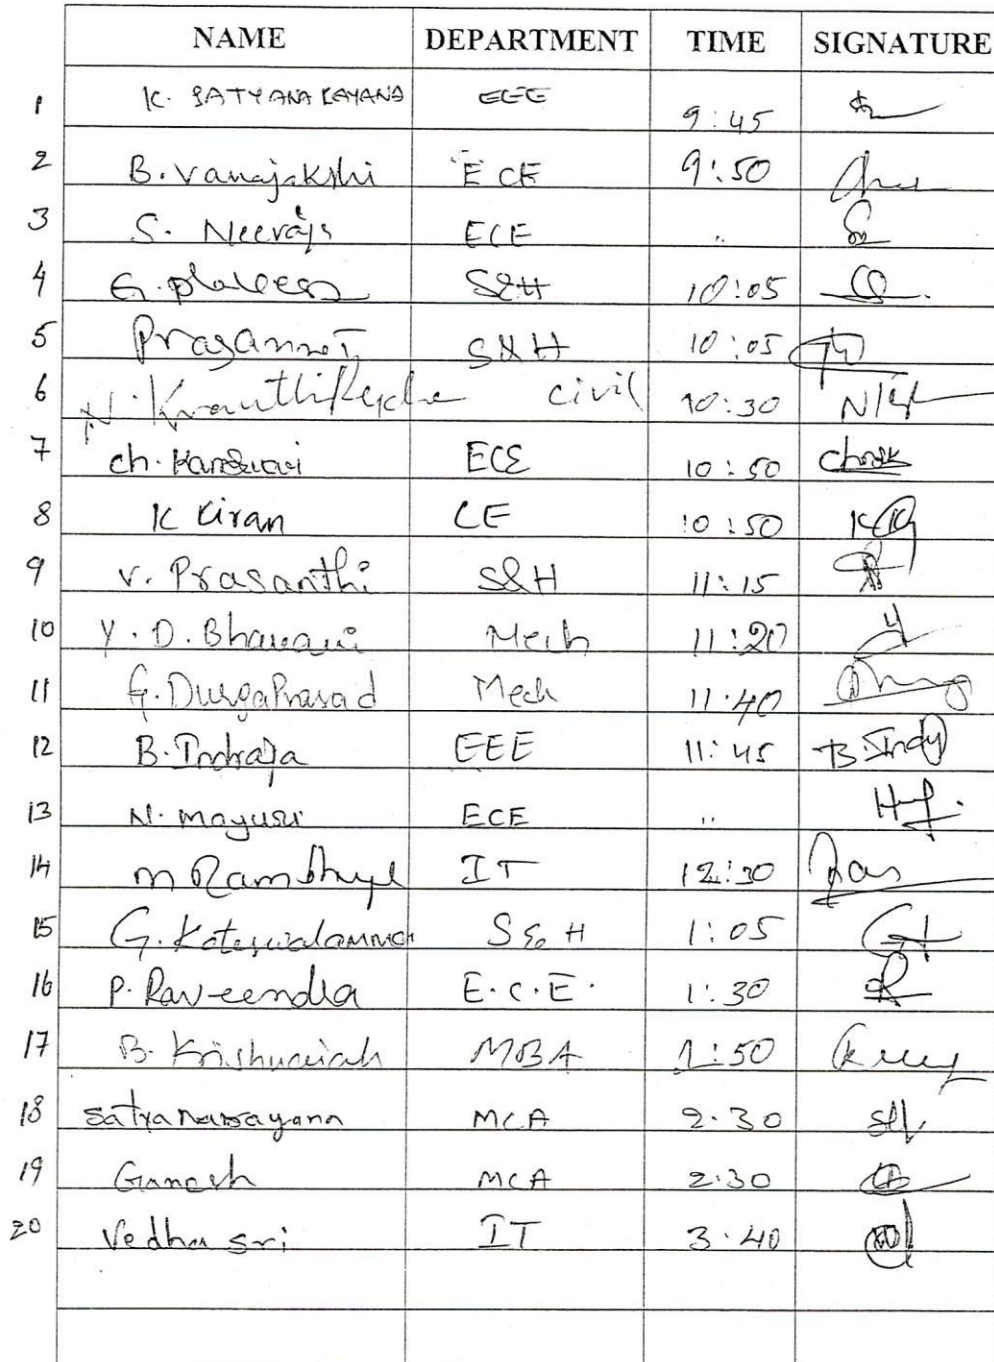 NAME DEPARTMENT TIME SIGNATURE
1 K. SATYANARAYANA EEE 9:45
2 B. Vanajakshi ECE 9:50
3 S. Neeraja ECE ,,
4 G. S&H 10:05
5 S&H 10:05
6 N. civil 10:30
7 ch. ECE 10:50
8 K Kiran CE 10:50
9 V. Prasanthi S&H 11:15
10 Y. D. Bhavani Mech 11:20
11 G. DurgaPrasad Mech 11:40
12 B. Indraja EEE 11:45
13 N. mayuri ECE ,,
14 m IT 12:30
15 G. S & H 1:05
16 P. Raveendra E.C.E. 1:30
17 B. Krishnaiah MBA 1:50
18 satyanarayana MCA 2.30
19 Ganesh MCA 2.30
20 Vedha sri IT 3.40